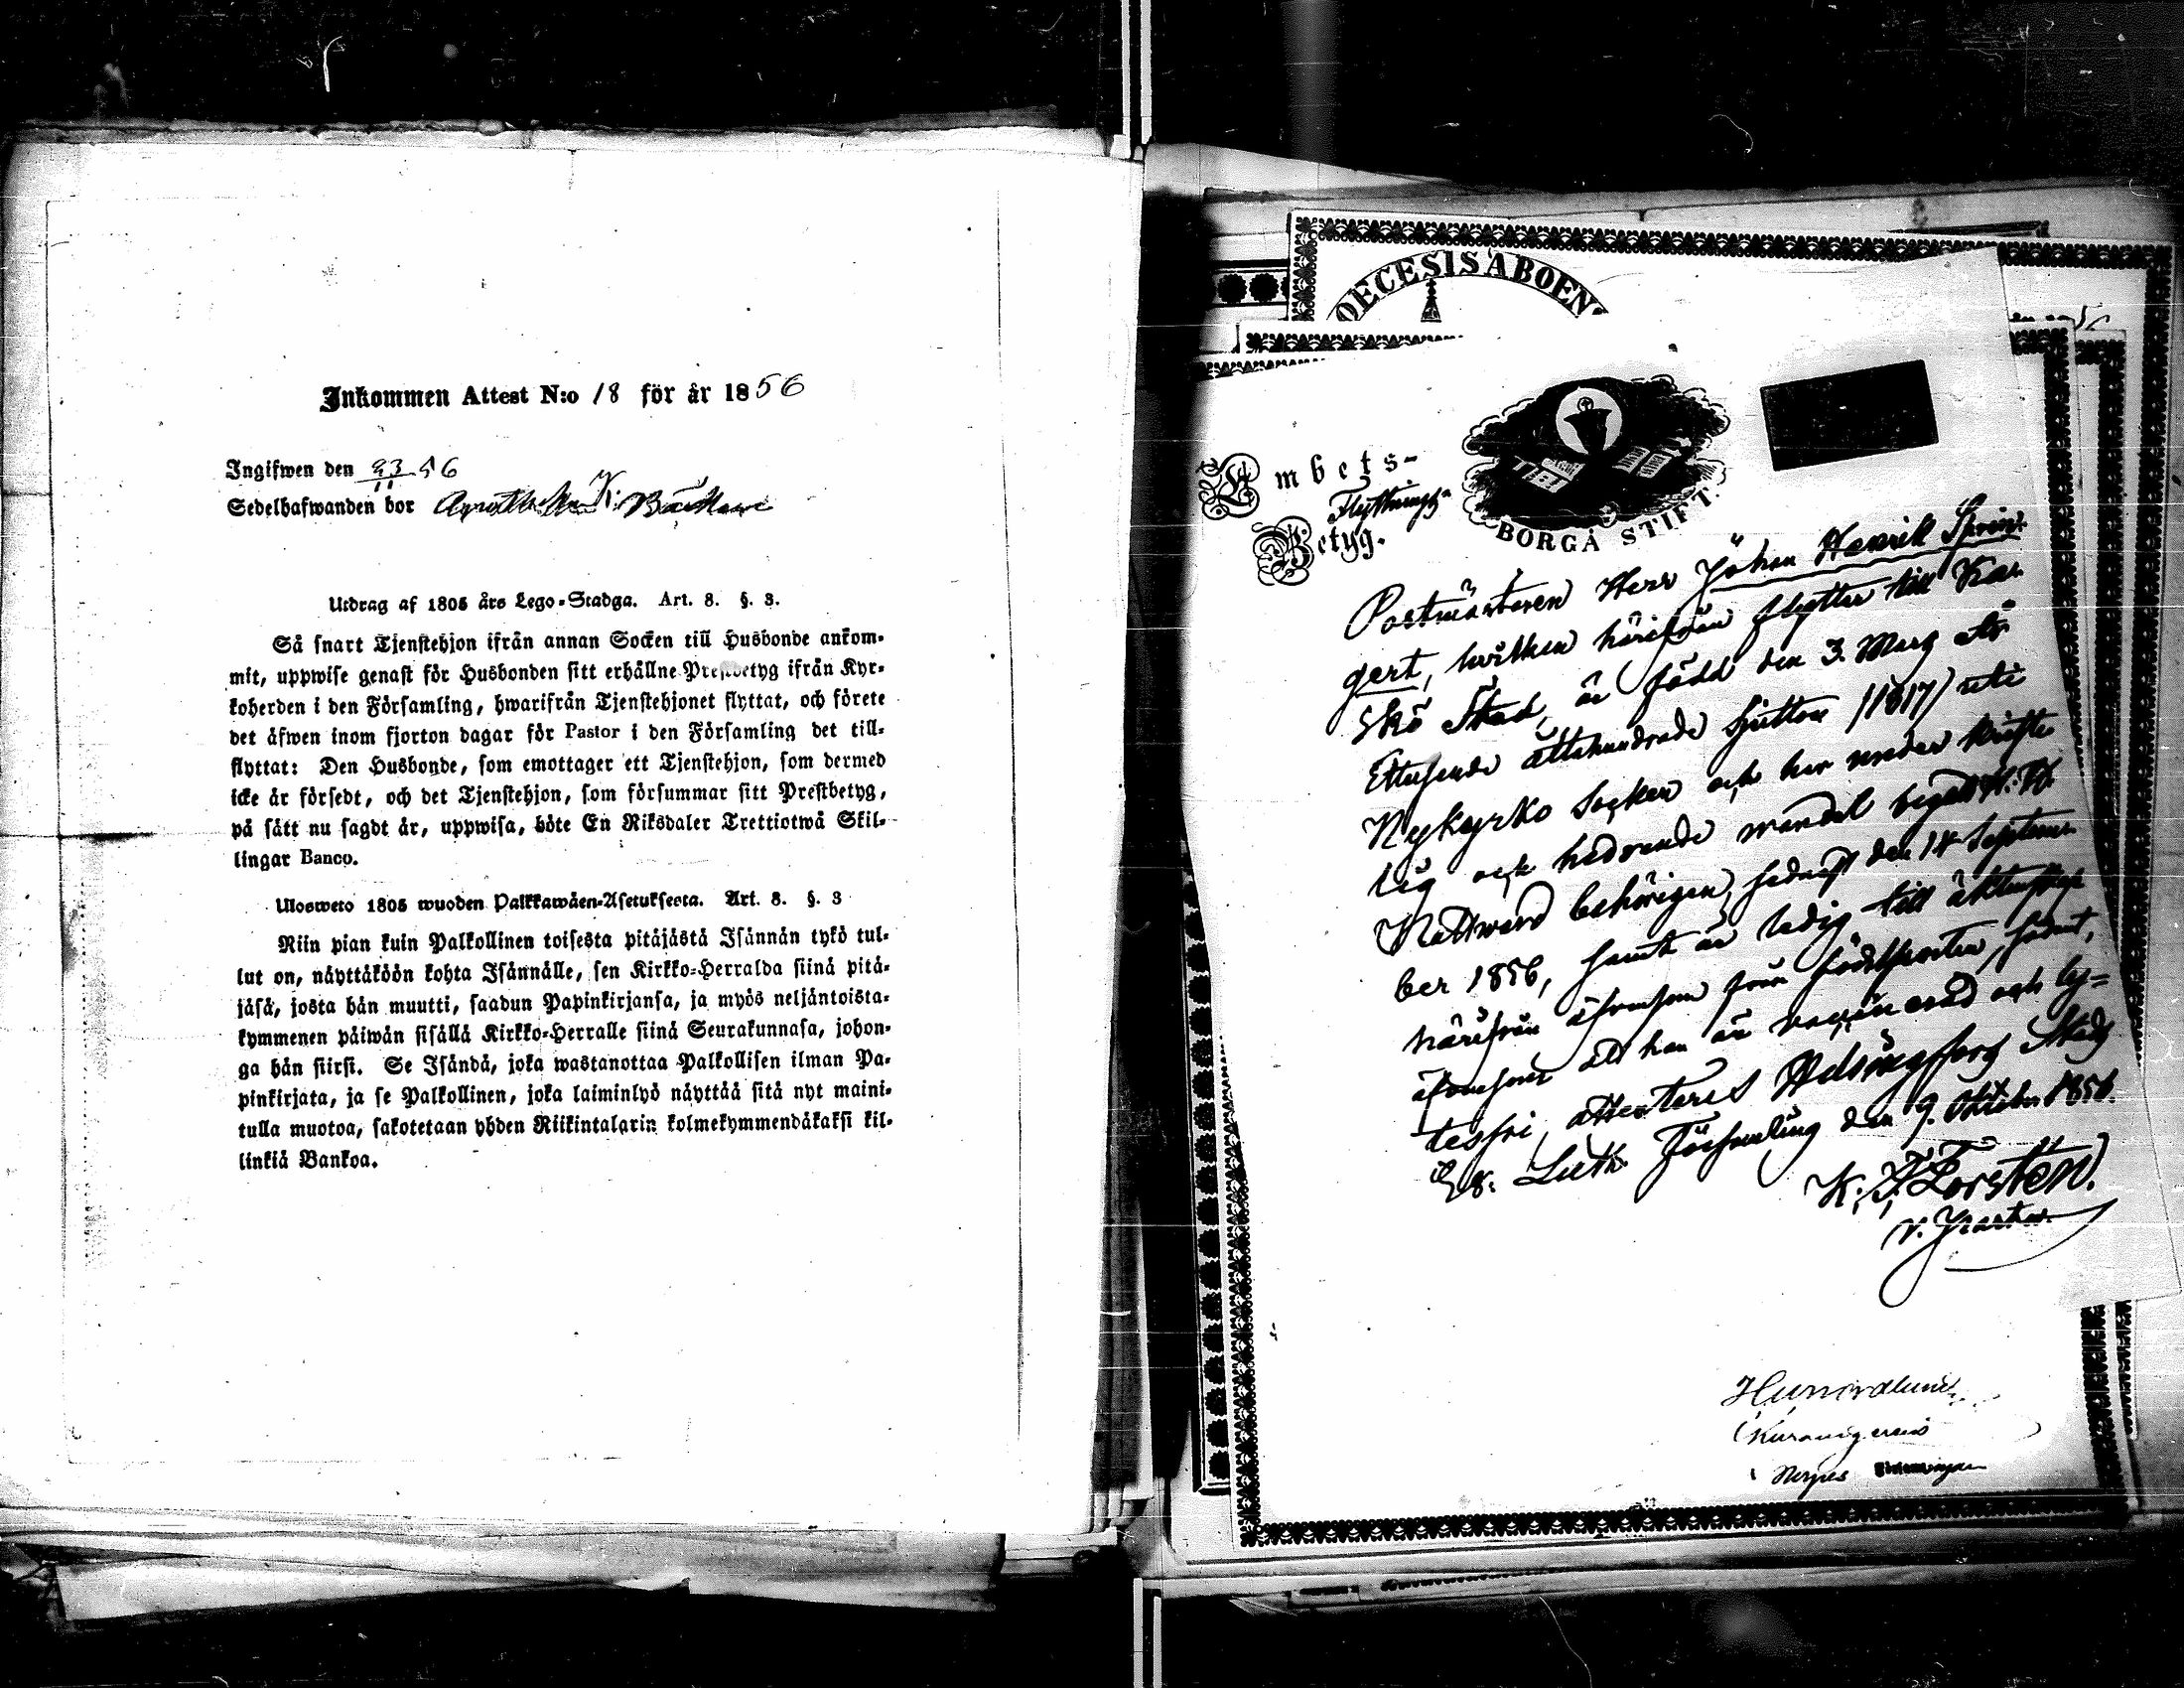 Inkommen Attest N:o 18 för år 1856
Ingifwen den 23/11 56
Sedelhafwanden bor
Utdrag af 1805 års Lego-Stadga. Art. 8. §. 3.
Så snart Tjenstehjon ifrån annan Socken till Husbonde ankom-
mit, uppwise genast för Husbonden sitt erhållne Prestbetyg ifrån Kyr-
koherden i den Församling, hwarifrån Tjenstehjonet flyttat, och förete
det äfwen inom fjorton dagar för Pastor i den Församling det till-
flyttat: Den Husbonde, som emottager ett Tjenstehjon, som dermed
icke är försedt, och det Tjenstehjon, som försummar sitt Prestbetyg,
på sätt nu sagdt är, uppwisa, böte En Riksdaler Trettiotwå Skil-
lingar Banco.
Ulosweto 1805 wuoden Palkkawäen-Asetuksesta. Art. 8. §. 3
Niin pian kuin Palkollinen toisesta pitäjästä Isännän tykö tul-
lut on, näyttäköön kohta Isännälle, sen Kirkko-Herralda siinä pitä-
jäsä, josta hän muutti, saadun Papinkirjansa, ja myös neljäntoista-
kymmenen päiwän sisällä Kirkko-Herralle siinä Seurakunnasa, johon-
ga hän siirsi. Se Isändä, joka wastanottaa Palkollisen ilman Pa-
pinkirjata, ja se Palkollinen, joka laiminlyö näyttää sitä nyt maini-
tulla muotoa, sakotetaan yhden Riikintalarin kolmekymmendäkaksi kil-
linkiä Bankoa.
OECESIS ABOEN
Embets-
Flyttnings-
Betyg.
BORGÅ STIFT.
Postmästaren Herr Johan Henrik Sprin-
gert, hwilken härifrån flyttar till Kas-
kö Stad, är född den 3. Mars år
Ettusende åttahundrade sjutton /1817/ uti
Nykyrko Socken och har under kriste-
lig och hedrande wandel begått H. H.
Nattward behörigen, sednast den 14 Septem-
ber 1856, samt är ledig till äktenskap
härifrån äfwensom från födelseorten,
äfwensom att han är vaccinerad och ly-
tesfri, attesteras Helsingfors Stads
Ev. Luth. Församling den 9. Oktober 1856.
K. J. Forstén.
v. Pastor.